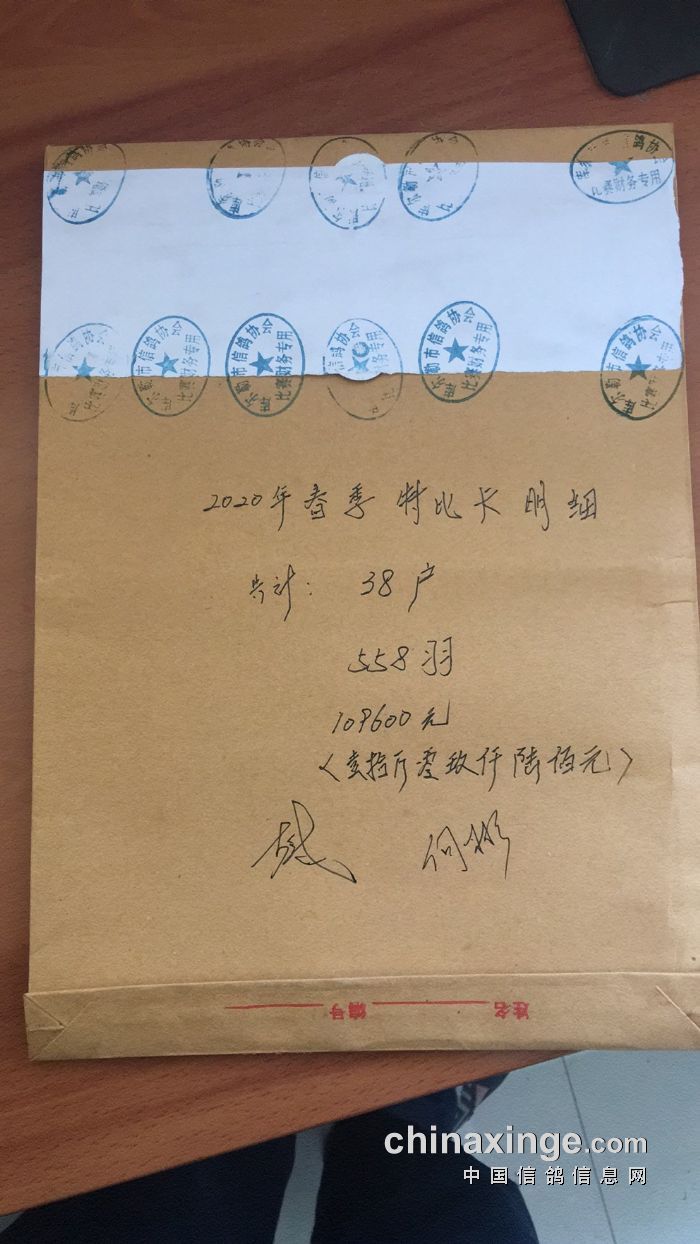 库尔勒市信鸽协会
比赛财务专用
2020年春季特比卡明细
共计: 38户
558羽
109600元
何彬
姓名
编号
chinaxinge.com
中国信鸽信息网